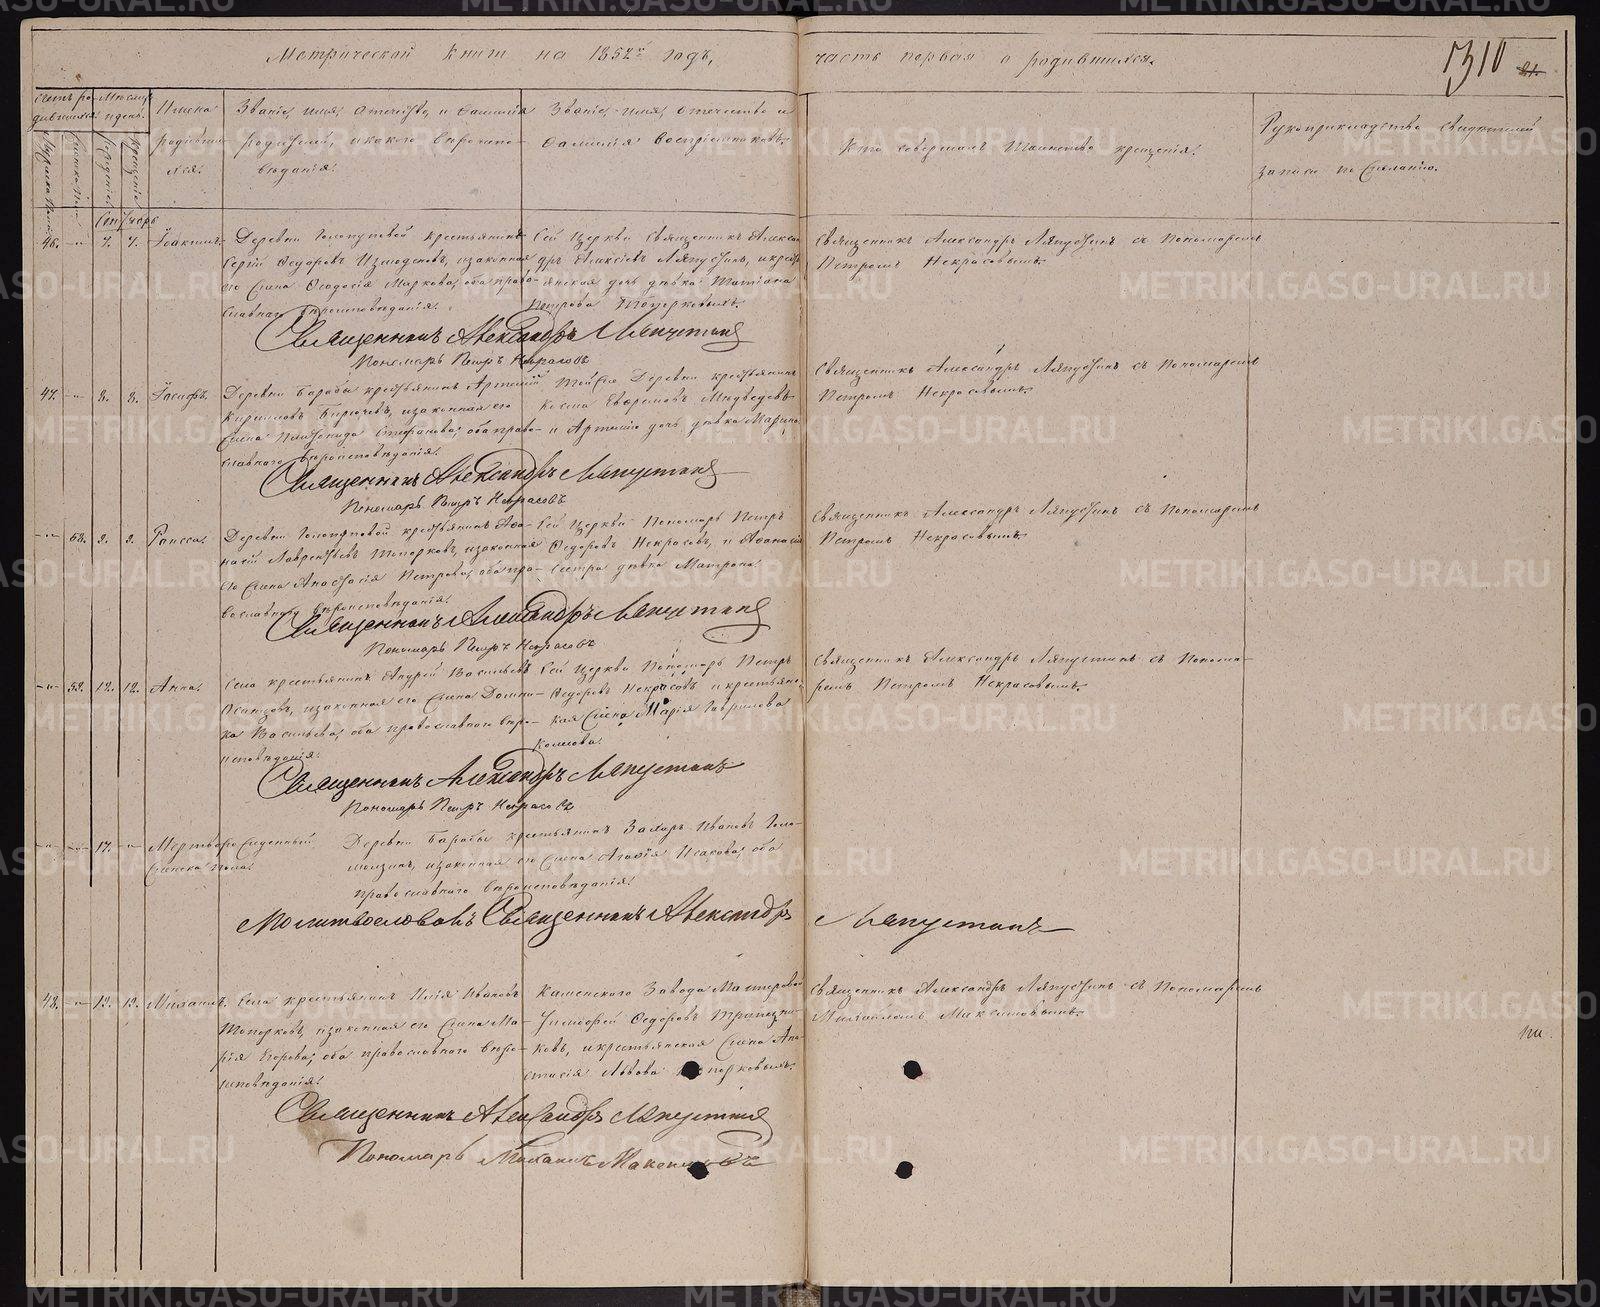 Метрической книги на 1852й годъ, часть первая о родившихся.
1310
Счетъ ро-
дившихся.
Мужеска пола
Женска пола
Месяцъ
и день.
Рожденія
Крещенія
Имена
родивши-
хся.
Званіе, имя, отчество, и фамилія
родителей, и какого вѣроиспо-
вѣданія.
Званіе, имя, отчество и
фамилія воспріемниковъ.
Кто совершалъ таинство крещенія.
Рукоприкладство свидѣтелей
записи по желанію.
Сентябрь
46. -"- 7. 7. Іоакимъ.
Деревни крестьянинъ
Сергій Ѳедоровъ законная
его жена Ѳеодосія Маркова, оба право-
славнаго вѣроисповѣданія.
Сей Церкви Священникъ Алексан-
дръ Алексіевъ Ляпустинъ, и кресть-
янская дочь дѣвка Татіана
Петрова Топорковыхъ.
Священникъ Александръ Ляпустинъ съ Пономаремъ
Петромъ Некрасовымъ.
Священникъ Александръ Ляпустинъ
Пономарь Петръ Некрасовъ
47. -"- 8. 8. Іосифъ.
Деревни Барабы крестьянинъ Артемій
Кирилловъ Бирючевъ, и законная его
жена Стефанова, оба право-
славнаго вѣроисповѣданія.
Той же Деревни крестьянинъ
Косма Евфремовъ Медведевъ
и Артемія дочь дѣвка Марина
Священникъ Александръ Ляпустинъ съ Пономаремъ
Петромъ Некрасовымъ.
Священникъ Александръ Ляпустинъ
Пономарь Петръ Некрасовъ
-"- 9. 9. Раисса.
Деревни крестьянинъ Аѳа-
насій Лаврентьевъ Топорковъ, и законная
его жена Анастасія Петрова, оба пра-
вославнаго вѣроисповѣданія.
Сей Церкви Пономарь Петръ
Ѳедоровъ Некрасовъ, и Аѳанасія
сестра дѣвка Матрона.
Священникъ Александръ Ляпустинъ съ Пономаремъ
Петромъ Некрасовымъ.
Священникъ Александръ Ляпустинъ
Пономарь Петръ Некрасовъ
-"- 12. 12. Анна.
Села крестьянинъ Андрей Васильевъ
и законная его жена Домни-
ка Васильева, оба православнаго вѣро-
исповѣданія.
Сей Церкви Пономарь Петръ
Ѳедоровъ Некрасовъ и крестьянс-
кая жена Марія Гаврилова
Священникъ Александръ Ляпустинъ съ Понома-
ремъ Петромъ Некрасовымъ.
Священникъ Александръ Ляпустинъ
Пономарь Петръ Некрасовъ
-"- -"- 17. -"- Мертворожденный
женска пола.
Деревни Барабы крестьянинъ Захаръ Ивановъ
и законная его жена Агафія Исакова, оба
православнаго вѣроисповѣданія.
Молитвослововъ Священникъ Александръ Ляпустинъ
48. -"- 19. 19. Михаилъ.
Села крестьянинъ Илія Ивановъ
Топорковъ, и законная его жена Ма-
рія Егорова, оба православнаго вѣро-
исповѣданія.
Каменского Завода Мастеровой
Тимофей Ѳедоровъ Трапезни-
ковъ, и крестьянская жена Ана-
стасія Львова Топорковыхъ.
Священникъ Александръ Ляпустинъ съ Пономаремъ
Михаиломъ Максимовымъ.
Священникъ Александръ Ляпустинъ
Пономарь Михаилъ Максимовъ
METRIKI.GASO-URAL.RU